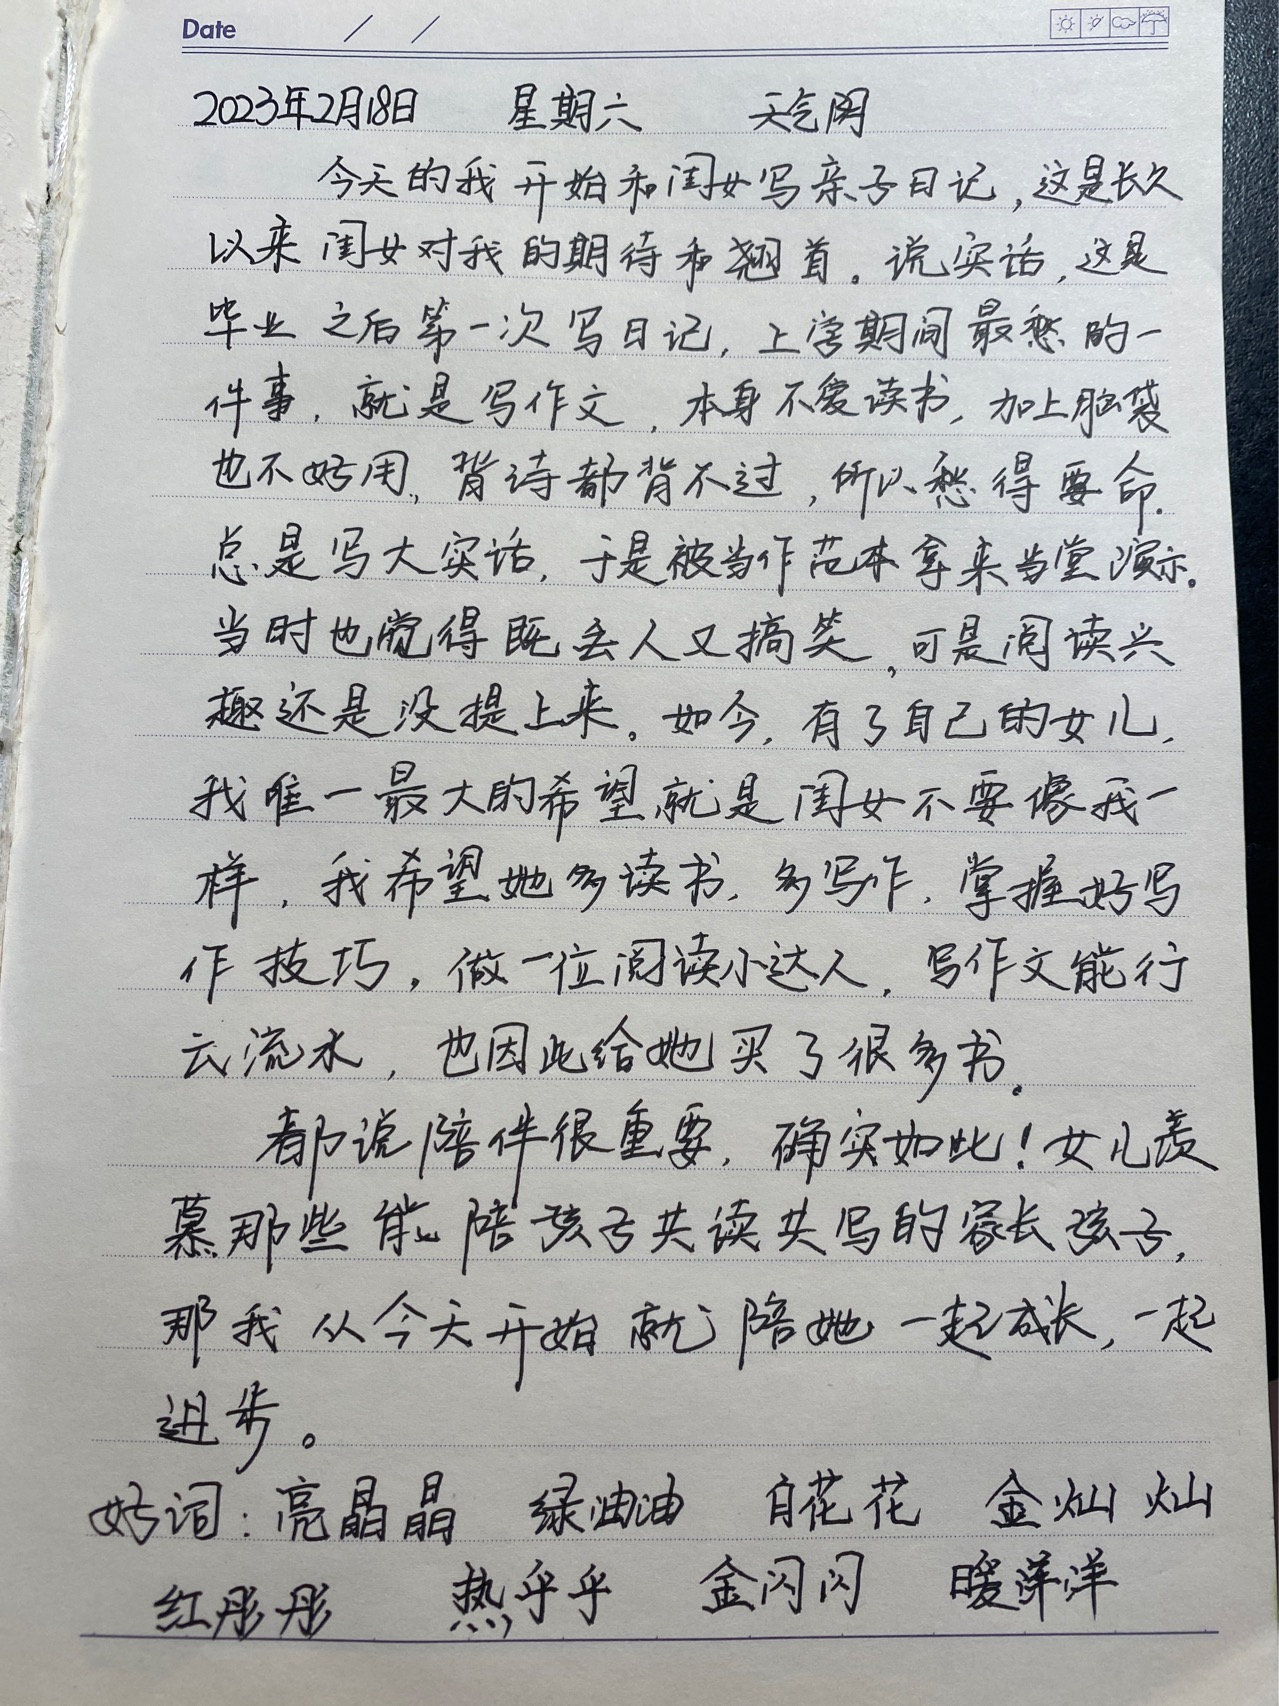 Date / /
2023年2月18日 星期六 天气阴
今天的我开始和闺女写亲子日记,这是长久
以来闺女对我的期待和翘首。说实话,这是
毕业之后第一次写日记,上学期间最愁的一
件事,就是写作文,本身不爱读书,加上脑袋
也不好用,背诗都背不过,所以愁得要命.
总是写大实话,于是被当作范本拿来当堂演示。
当时也觉得既丢人又搞笑,可是阅读兴
趣还是没提上来。如今,有了自己的女儿,
我唯一最大的希望就是闺女不要像我一
样,我希望她多读书,多写作,掌握好写
作技巧,做一位阅读小达人,写作文能行
云流水,也因此给她买了很多书。
都说陪伴很重要,确实如此!女儿羡
慕那些能陪孩子共读共写的家长孩子,
那我从今天开始就陪她一起成长,一起
进步。
好词:亮晶晶 绿油油 白花花 金灿灿
红彤彤 热乎乎 金闪闪 暖洋洋